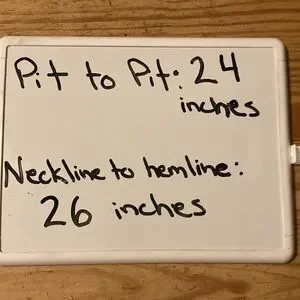 Pit to Pit: 24
inches
Neckline to hemline:
26 inches